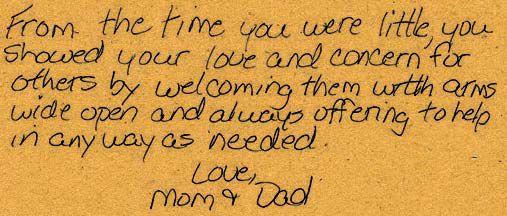 From the time you were little, you
showed your love and concern for
others by welcoming them with arms
wide open and always offering to help
in any way as needed.
Love,
Mom & Dad